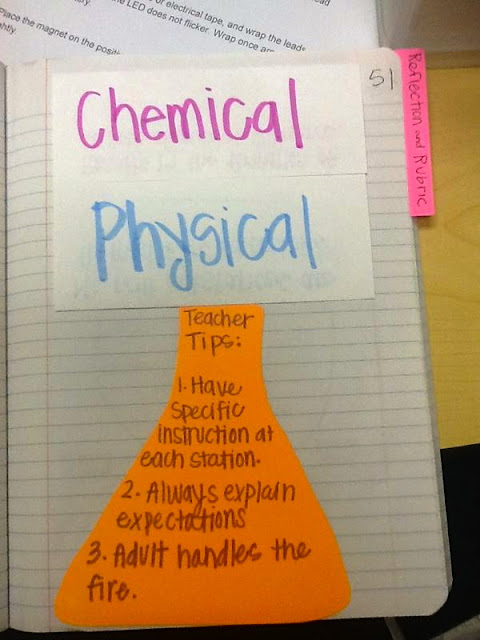 of electrical tape, and wrap the leads
the LED does not flicker. Wrap once
Place the magnet on the
51
Reflection and Rubric
Chemical
Physical
Teacher
Tips:
1. Have
specific
instruction at
each station.
2. Always explain
expectations
3. Adult handles the
fire.